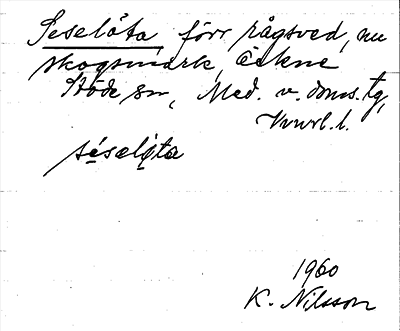 Seselöta förr rågsved, nu
skogsmark, Öckne
Stöde sn, Med. v. doms. tg,
Vvrl. l.
séselǫ̈ta
1960
K. Nilsson